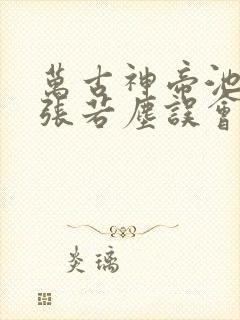 萬古神帝池
張若塵誤會
炎璃